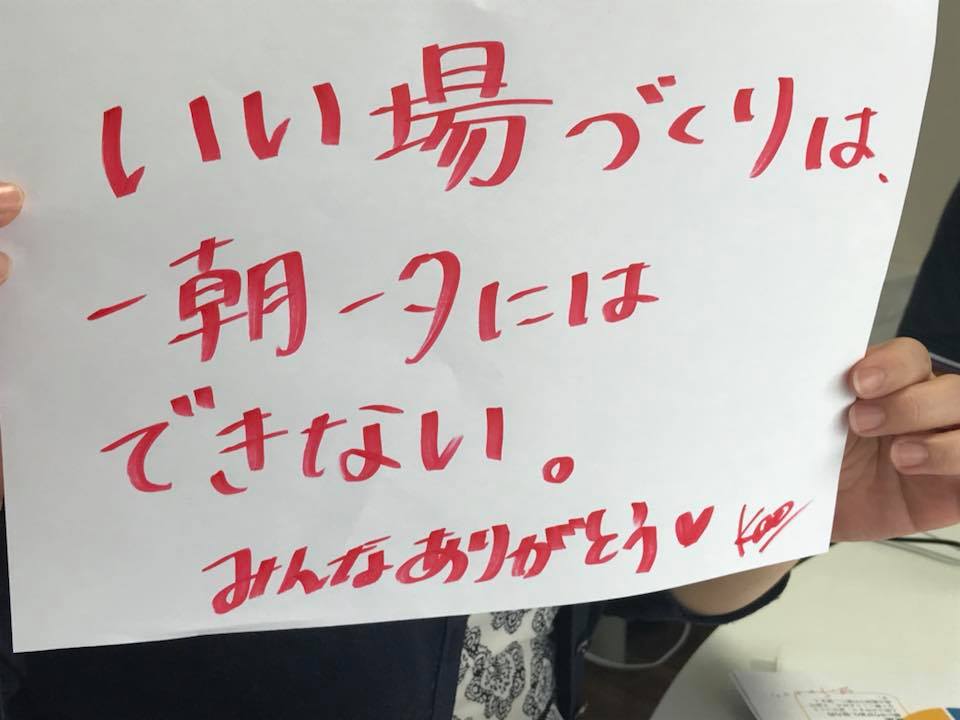 いい場づくりは、
一朝一夕には
できない。
みんなありがとう♥ Kao